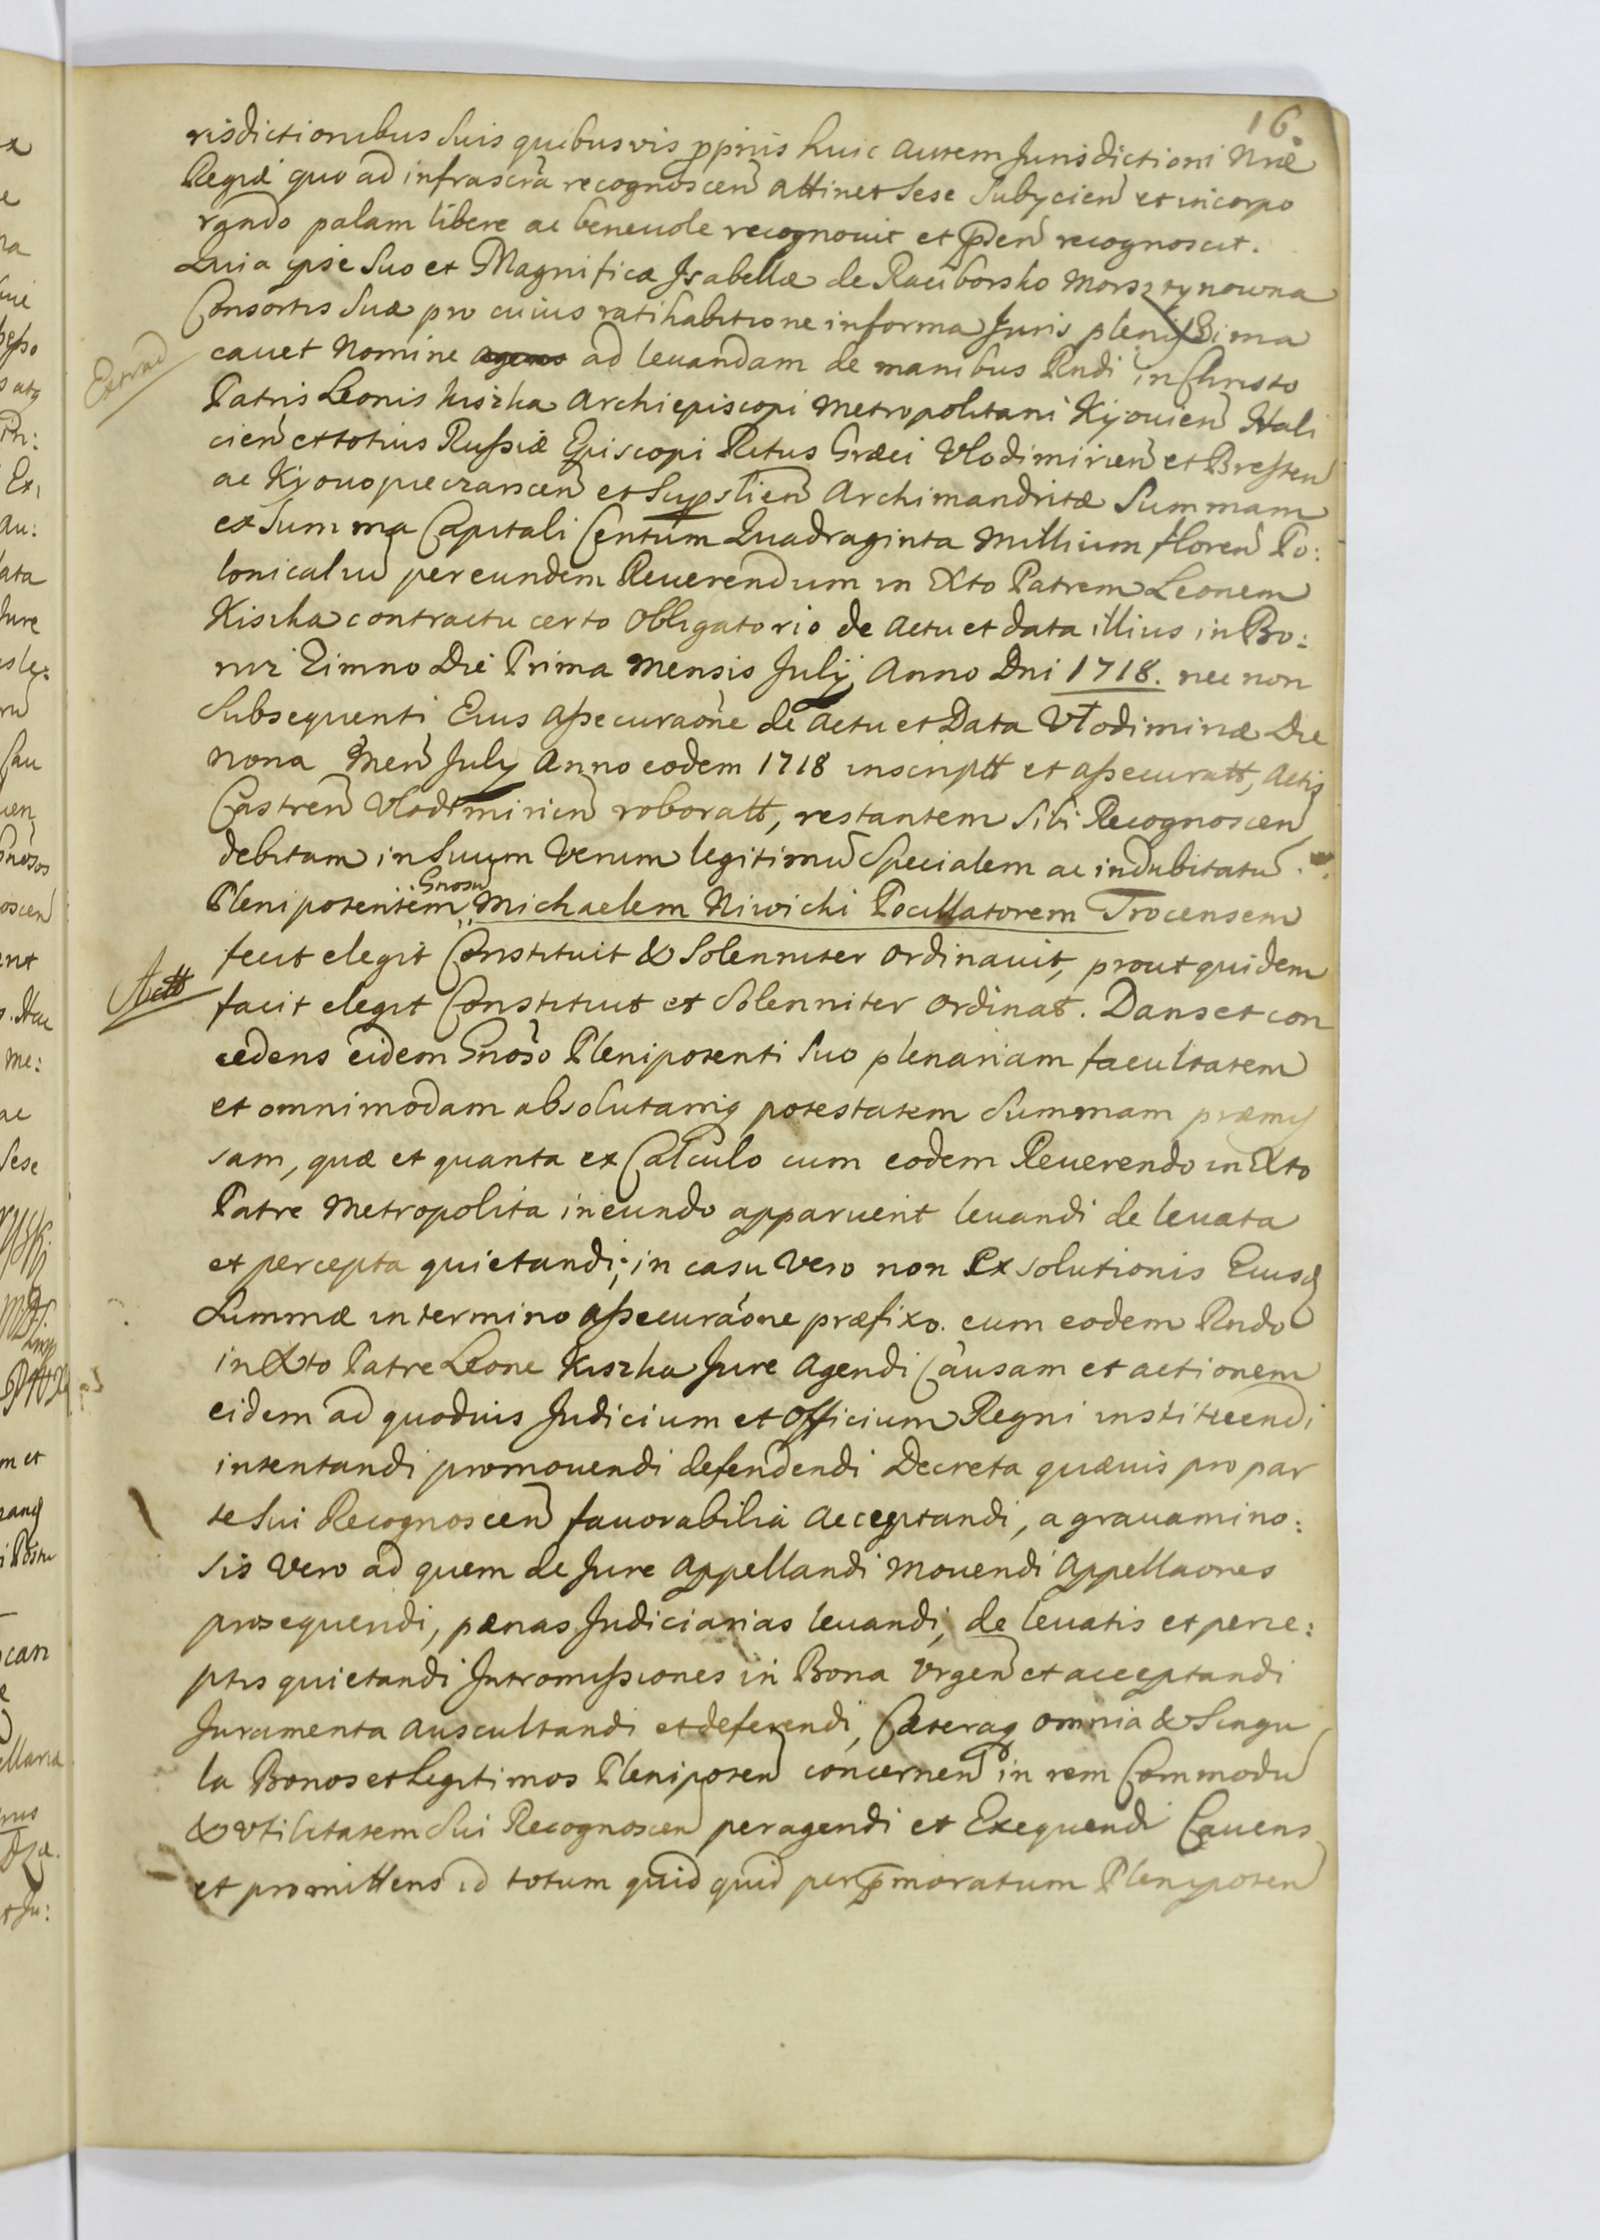 16.
risdictionibus Suis quibusvis ppriis huic autem Jurisdictioni Nrae
Regiae quo ad infrascra recognoscen attinet Sese Subycien et incorpo
rando palam libere ac beneuole recognouit et pden recognoscit.
Quia ipse Suo et Magnificae Isabellae de Raciborsko Morsztynowna
Consortis Suae pro cuius ratihabitione in forma Juris plenissima
Extrad
cauet Nomine ad leuandam de manibus Rndi in Christo
Patris Leonis Kiszka Archiepiscopi Metropolitani Kijouien Hali
cien et totius Russiae Episcopi Ritus Graeci Vlodimirien et Bresten
ac Kijouopieczarscen et Supslien Archimandritae Summam
ex Summa Capitali Centum Quadraginta Millium floren Po:
lonicaliu per eundem Reuerendum in Xto Patrem Leonem
Kiszka contractu certo Obligatorio de actu et data illius in Bo:
nis Zimno Die Prima Mensis Julij Anno Dni 1718. nec non
Subsequenti Eius assecuraone de actu et Data Vlodimiriae Die
nona Men July Anno eodem 1718 inscriptt et assecuratt, Actis
Castren Vlodimirien roboratt, restantem Sibi Recognoscen
debitam in Suum Verum legitimu Specialem ac indubitatu
Plenipotentem Gnosu Michaelem Niwicki Pocillatorem Trocensem
fecit elegit Constituit & Solenniter ordinauit, prout quidem
Actt
facit elegit Constituit et Solenniter ordinat. Dans et con
cedens eidem Gnoso Plenipotenti Suo plenariam facultatem
et omnimodam absolutamq potestatem Summam praemis
sam, quae et quanta ex Calculo cum eodem Reuerendo in Xto
Patre Metropolita ineundo apparuerit leuandi de leuata
et percepta quietandi; in casu Vero non Exsolutionis Eiusd
Summae in termino assecuraone praefixo cum eodem Rndo
in Xto Patre Leone Kiszka Jure agendi Causam et actionem
eidem ad quoduis Judicium et Officium Regni instituendi
intentandi promouendi defendendi Decreta quaeuis pro par
te Sui Recognoscen fauorabilia acceptandi, a grauamino:
sis Vero ad quem de Jure appellandi mouendi appellaones
prosequendi, paenas Judiciarias leuandi, de leuatis et perce:
ptis quietandi Intromissiones in Bona Vrgen et acceptandi
Juramenta auscultandi et deferendi, Caeteraq omnia & Singu
la Bonos et Legitimos Plenipoten concernen in rem Commodu
& Vtilitatem Sui Recognoscen peragendi et Exequendi Cauens
et promittens id totum quid quid per pmoratum Plenipoten